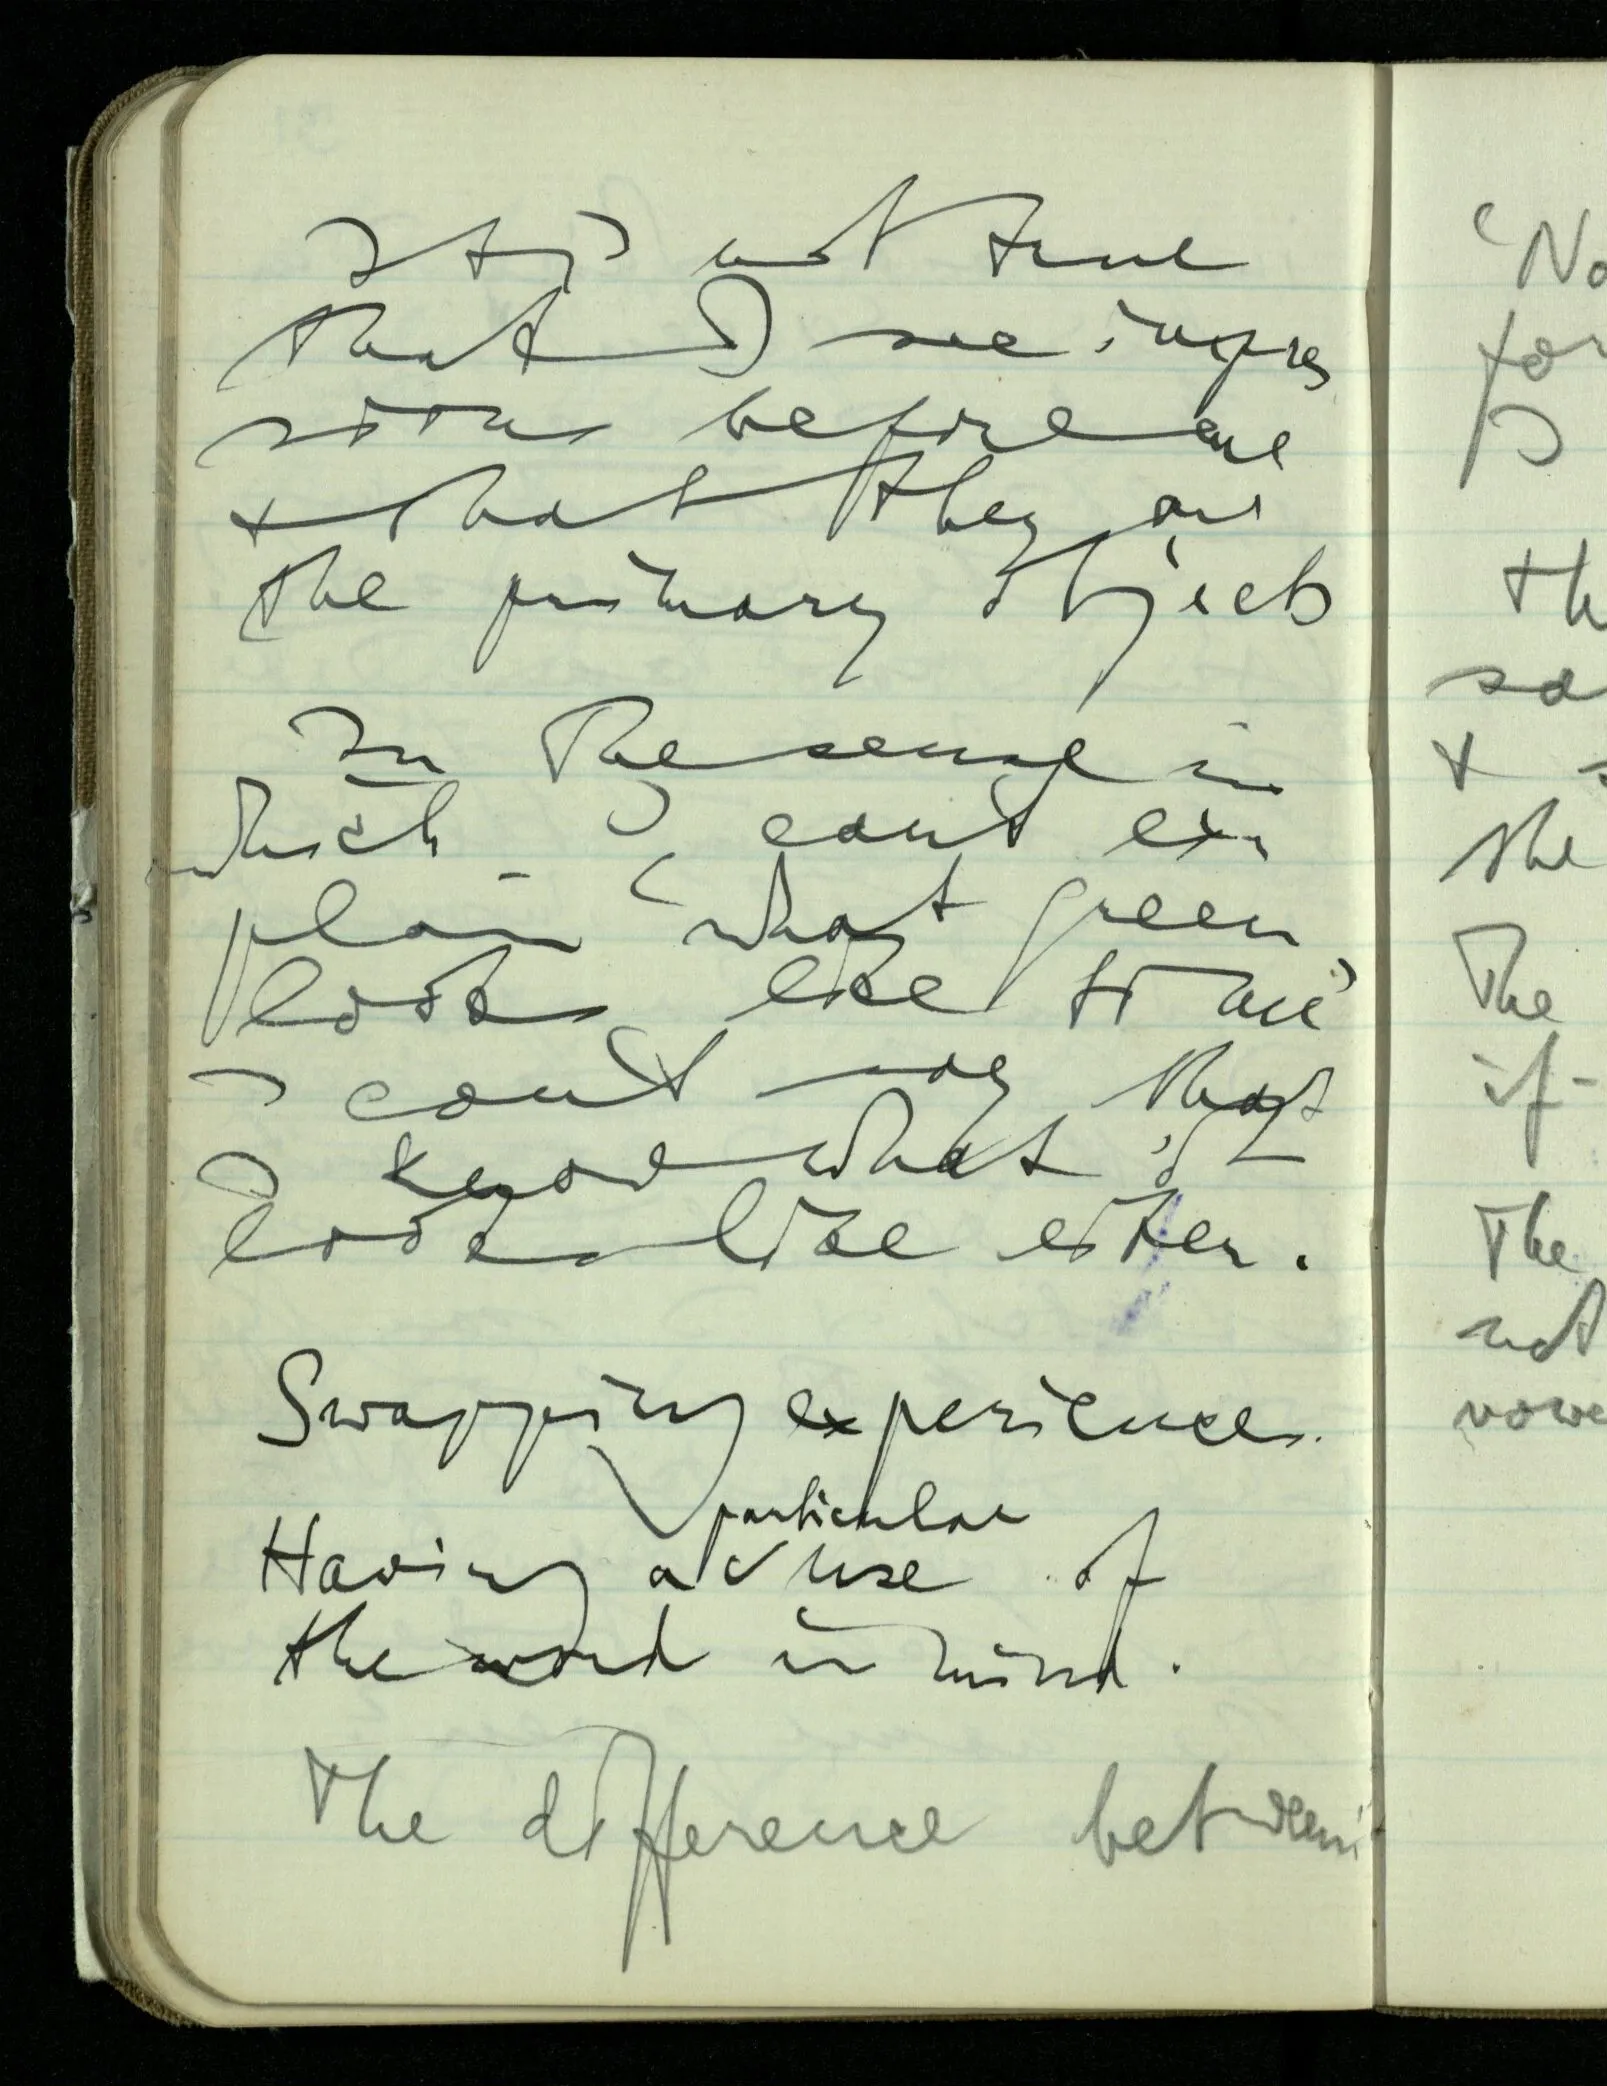 It is not true
that I see impres
sions before me
& that they are
the primary objects
In the sense in
which I cant ex-
plain 'what green
looks like to me'
I cant say that
I know what it
looks like either.
Swapping experiences.
particular
Having a use of
the word in mind.
The difference between
'No
for
th
so
&
the
The
if-
The
not
vowe